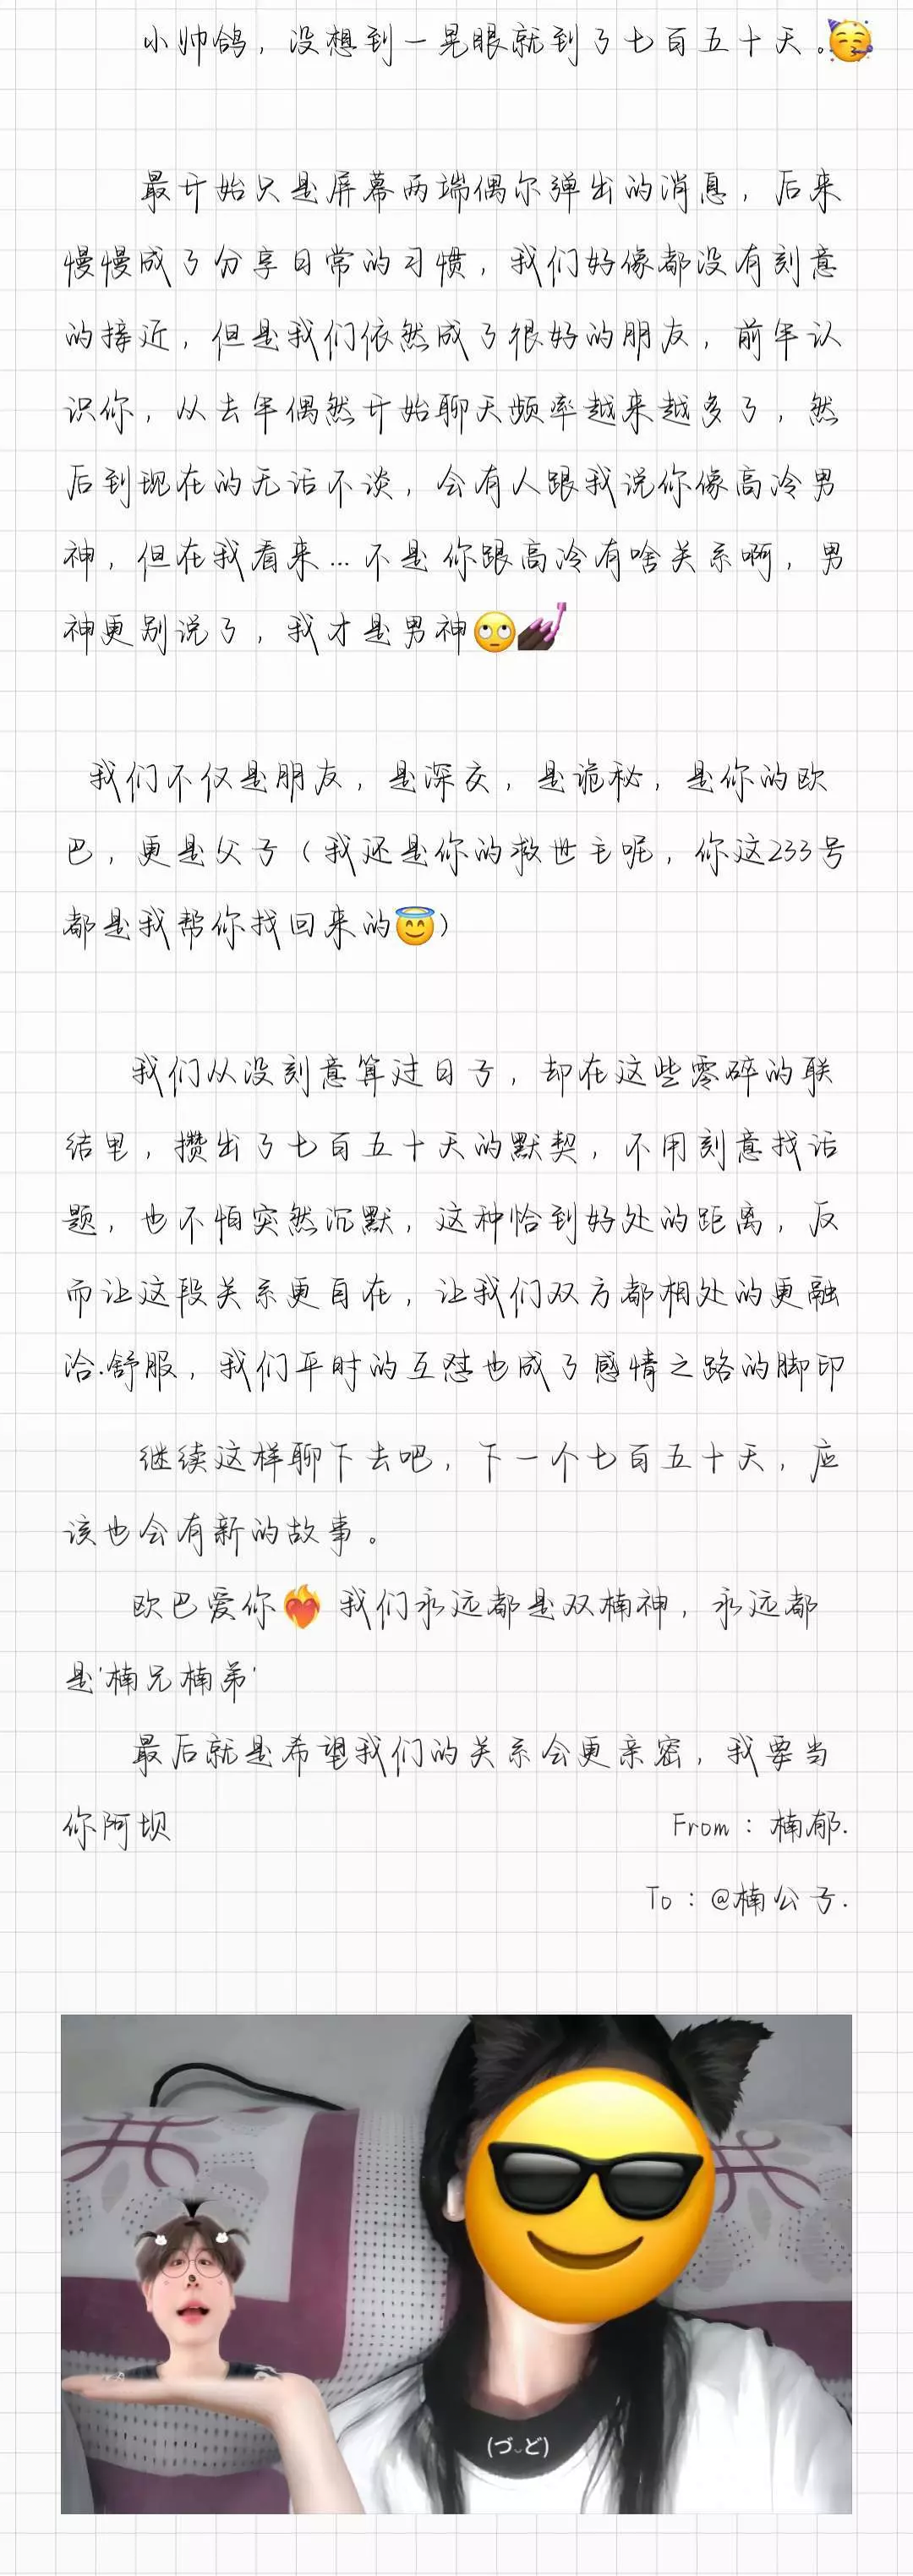 小帅鸽，没想到一晃眼就到了七百五十天。🥳
最开始只是屏幕两端偶尔弹出的消息，后来
慢慢成了分享日常的习惯，我们好像都没有刻意
的接近，但是我们依然成了很好的朋友，前年认
识你，从去年偶然开始聊天频率越来越多了，然
后到现在的无话不谈，会有人跟我说你像高冷男
神，但在我看来...不是你跟高冷有啥关系啊，男
神更别说了，我才是男神🙄💅🏿
我们不仅是朋友，是深交，是诡秘，是你的欧
巴，更是父子（我还是你的救世主呢，你这233号
都是我帮你找回来的😇）
我们从没刻意算过日子，却在这些零碎的联
结里，攒出了七百五十天的默契，不用刻意找话
题，也不怕突然沉默，这种恰到好处的距离，反
而让这段关系更自在，让我们双方都相处的更融
洽.舒服，我们平时的互怼也成了感情之路的脚印
继续这样聊下去吧，下一个七百五十天，应
该也会有新的故事。
欧巴爱你❤️‍🔥 我们永远都是双楠神，永远都
是'楠兄楠弟'
最后就是希望我们的关系会更亲密，我要当
你阿坝 From：楠郁.
To：@楠公子.
(づ ど)